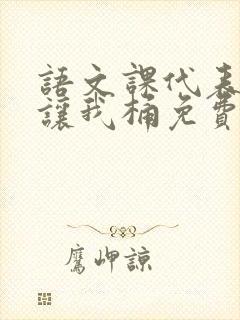 語文課代表
讓我桶免費
鷹岬諒